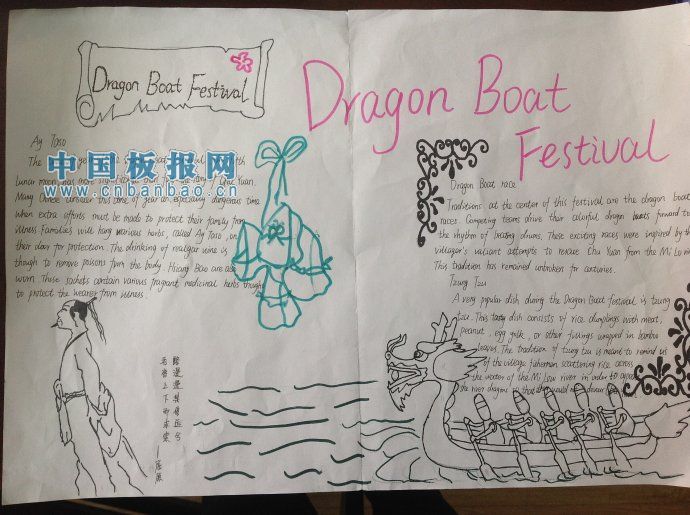 Dragon Boat Festival
Dragon Boat
Festival
Ay Taso
The
Lunar moon has more
Many Chinese consider this time of year an especially dangerous time
when extra efforts must be made to protect their family from
illness. Families will hang various herbs, called Ay Tsao, on
their door for protection. The drinking of realgar wine is
though to remove poisons form the body. Hsiang Bao are also
worn. These sachets contain various fragrant medicinal herbs thought
to protect the wearer from illness.
中国板报网
www.cnbanbao.cn
Dragon Boat race
Traditions at the center of this festival are the dragon boat
races. Competing teams drive their colorful dragon boats forward to
the rhythm of beating drums. These exciting races were inspired by the
villager's valiant attempts to rescue Chu Yuan from the Mi Lo river.
This tradition has remained unbroken for centuries.
Tzung Tzu
A very popular dish during the Dragon Boat festival is tzung
tzu. This tasty dish consists of rice dumplings with meat,
peanut, egg yolk, or other fillings wrapped in bamboo
leaves. The tradition of tzung tzu is meant to remind us
of the village fisherman scattering rice across
the water of the Mi Low river in order to appease
the river dragons so that they would not devour
路漫漫其修远兮
吾将上下而求索
—屈原